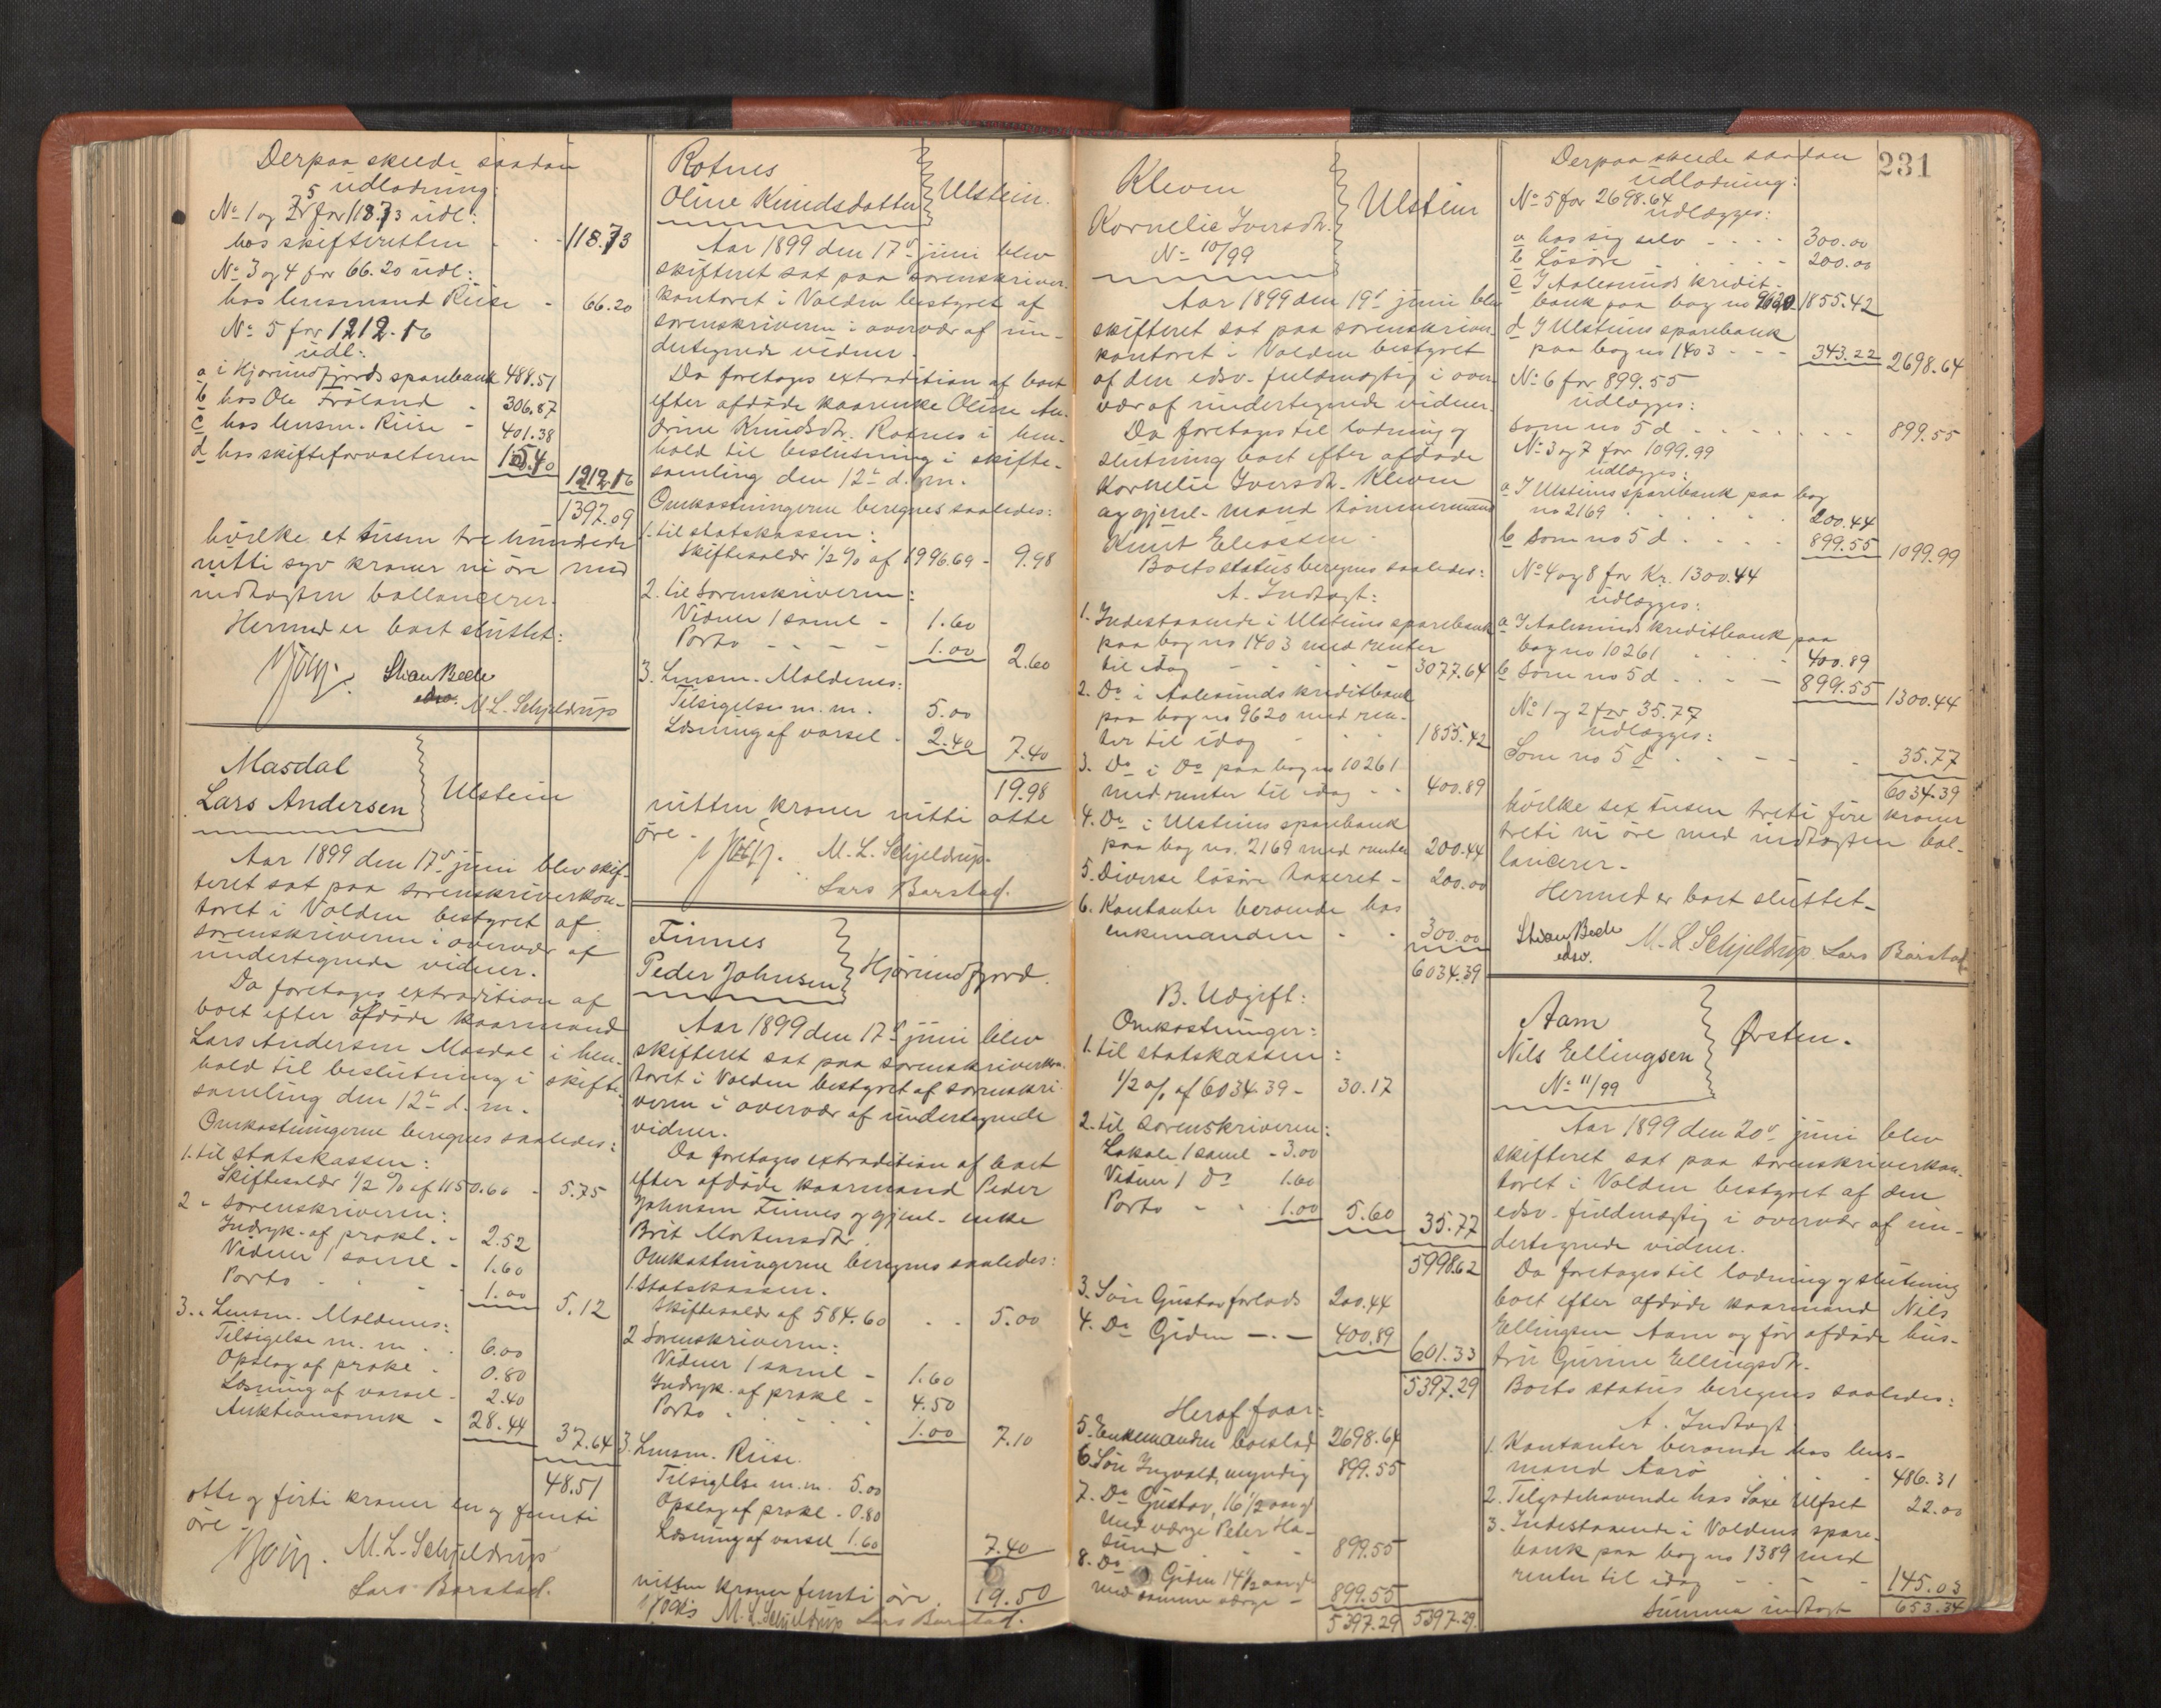 Derpaa skede saadan
udlodning:
No 1 og 2 for 118.73 udl:
hos skifteretten - - - 118.73
No 3 og 4 for 66.20 udl:
hos lensmand Riise - 66.20
No 5 for 1212.16
udl:
a i Hjørundfjords sparebank 488.51
b hos Ole Frøland - 306.87
c hos lensm. Riise - 401.38
d hos skifteforvalteren 15.40
1212.16
1397.09
hvilke et tusen tre hundrede
nitti syv kroner ni øre med
indtægten ballancerer.
Hermed er boet sluttet:
Stian Bech
edsv. M. L. Schjeldrup
Masdal
Lars Andersen
Ulstein
Aar 1899 den 17de juni blev skif-
teret sat paa sorenskriverkon-
toret i Volden bestyret af
sorenskriveren i overvær af
undertegnede vidner.
Da foretages extradition af
boet efter afdøde kaarmand
Lars Andersen Masdal i hen-
hold til beslutning i skifte-
samling den 12te d. m.
Omkostningerne beregnes saaledes:
1. til statskassen:
Skiftesalær 1/2 % af 1150.60 - 5.75
2 - sorenskriveren:
Indryk. af prokl. - 2.52
Vidner 1 saml - 1.60
Porto - - - 1.00
5.12
3. Lensm. Moldenes:
Tilsigelse m. m. - 6.00
Opslag af prokl - 0.80
Læsning af varsel - 2.40
Auktionsomk - 28.44
37.64
48.51
otte og førti kroner en og femti
øre -
M. L. Schjeldrup
Lars Barstad.
Rotnes
Oline Knudsdatter
Ulstein.
Aar 1899 den 17de juni blev
skifteret sat paa sorenskriver-
kontoret i Volden bestyret af
sorenskriveren i overvær af un-
dertegnede vidner.
Da foretages extradition af boet
efter afdøde kaarenke Oline An-
drine Knudsdtr. Rotnes i hen-
hold til beslutning i skifte-
samling den 12te d. m.
Omkostningerne beregnes saaledes:
1. til statskassen:
Skiftesalær 1/2 % af 1996.69 - 9.98
2. til Sorenskriveren:
Vidner 1 saml - 1.60
Porto - - - - 1.00
2.60
3. Lensm. Moldenes:
Tilsigelse m. m. 5.00
Læsning af varsel - 2.40
7.40
19.98
nitten kroner nitti otte
øre -
M. L. Schjeldrup.
Lars Barstad.
Finnes
Peder Johnsen
Hjørundfjord.
Aar 1899 den 17de juni blev
skifteret sat paa sorenskriverkon-
toret i Volden bestyret af sorenskri-
veren i overvær af undertegnede
vidner.
Da foretages extradition af boet
efter afdøde kaarmand Peder
Johnsen Finnes og gjenl. enke
Brit Mortensdtr.
Omkostningerne beregnes saaledes:
1. Statskassen.
Skiftesalær af 584.60 - - 5.00
2 Sorenskriveren:
Vidner 1 saml - 1.60
Indryk. af prokl - 4.50
Porto - - - - 1.00
7.10
3. Lensm. Riise.
Tilsigelse m. m. 5.00
Opslag af prokl - 0.80
Læsning af varsel 1.60
7.40
nitten kroner femti øre. 19.50
M. L. Schjeldrup Lars Barstad.
Kleven
Kornelie Iversdtr.
No 10/99
Ulstein
Aar 1899 den 19de juni blev
skifteret sat paa sorenskriver-
kontoret i Volden bestyret
af den edsv. fuldmægtig i over-
vær af undertegnede vidner.
Da foretages til lodning og
slutning boet efter afdøde
Kornelie Iversdtr. Kleven
og gjenl. mand tømmermand
Knut Eliassen.
Boets status beregnes saaledes:
A. Indtægt:
1. Indestaaende i Ulsteins sparebank
paa bog no 1403 med renter
til idag - - - - 3077.64
2. Do i Aalesunds kreditbank
paa bog no 9620 med ren-
ter til idag - - - 1855.42
3. Do i Do paa bog no 10261
med renter til idag - - 400.89
4. Do i Ulsteins sparebank
paa bog no. 2169 med renter 200.44
5. Diverse løsøre taxeret - 200.00
6. Kontanter beroende hos
enkemanden - - 300.00
6034.39
B. Udgift:
Omkostninger:
1. til statskassen:
1/2 % af 6034.39 - 30.17
2. til sorenskriveren:
Lokale 1 saml - 3.00
Vidner 1 Do 1.60
Porto - - 1.00 5.60 35.77
5998.62
3. Søn Gustav forlods 200.44
4. Do Giden -.- 400.89
601.33
5397.29
Heraf faar:
5. Enkemanden boeslod 2698.64
6. Søn Ingvald, myndig 899.55
7. Do Gustav, 16 1/2 aar gl
med værge Peter Ha-
sund - - - 899.55
8. Do Giden 14 1/2 aar gl
med samme værge - 899.55
5397.29 5397.29
231
Derpaa skede saadan
udlodning:
No 5 for 2698.64
udlægges:
a hos sig selv - - - - 300.00
b Løsøre - - - - - 200.00
c I Aalesunds kredit-
bank paa bog no 9620 1855.42
d I Ulsteins sparebank
paa bog no 1403 - - - 343.22
2698.64
No 6 for 899.55
udlægges:
som no 5 d - - - - - - 899.55
No 3 og 7 for 1099.99
udlægges:
a I Ulsteins sparebank paa bog
no 2169 - - - - - 200.44
b Som no 5 d - - - - 899.55
1099.99
No 4 og 8 for Kr. 1300.44
udlægges:
a I Aalesunds kreditbank paa
bog no 10261 - - - - 400.89
b Som no 5 d - - - - 899.55
1300.44
No 1 og 2 for 35.77
udlægges:
Som no 5 d - - - - - 35.77
6034.39
hvilke sex tusen treti fire kroner
treti ni øre med indtægten bal-
lancerer -
Hermed er boet sluttet -
Stian Bech
edsv.
M. L. Schjeldrup. Lars Barstad
Aam
Nils Ellingsen
No 11/99
Ørsten.
Aar 1899 den 20de juni blev
skifteret sat paa sorenskriverkon-
toret i Volden bestyret af den
edsv. fuldmægtig i overvær af un-
dertegnede vidner.
Da foretages til lodning og slutning
boet efter afdøde kaarmand Nils
Ellingsen Aam og før afdøde hus-
tru Gurine Ellingsdtr.
Boets status beregnes saaledes:
A. Indtægt
1. Kontanter beroende hos lens-
mand Aarø - - - 486.31
2. Tilgodehavende hos Saxe Ulfset 22.00
3. Indestaaende i Voldens spare-
bank paa bog no 1389 med
renter til idag - - - - 145.03
Summa indtægt 653.34